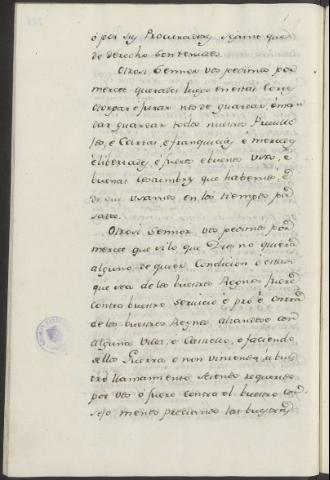 ó por sus Procuradores segunt que
de derecho son tenudos.
Otrosi Sennor vos pedimos por
merced querades luego en estas Cortes
otorgar é jurar nos de guardar, é man
dar guardar todos nuestros Preville
jos, é Cartas, é franquezas, é mercedes
é libertades, é fueros é buenos usos, é
buenas costumbres que habemos, é
de que usamos en los tiempos pa-
sados.
Otrosi Sennor vos pedimos por
merced que si lo que Dios no quiera
alguno de qual quier Condicion é estado
que sea de los vuestros Regnos fuere
contra vuestro servicio é pró é contra
de los vuestros Regnos alzandose con
alguna Villa, ó Castiello, ó faciendo
dellos Guerra ó non viniendo á vues
tro llamamiento seiendo requerido
por vos ó fuere contra el vuestro con
sejo menos preciando las vuestras